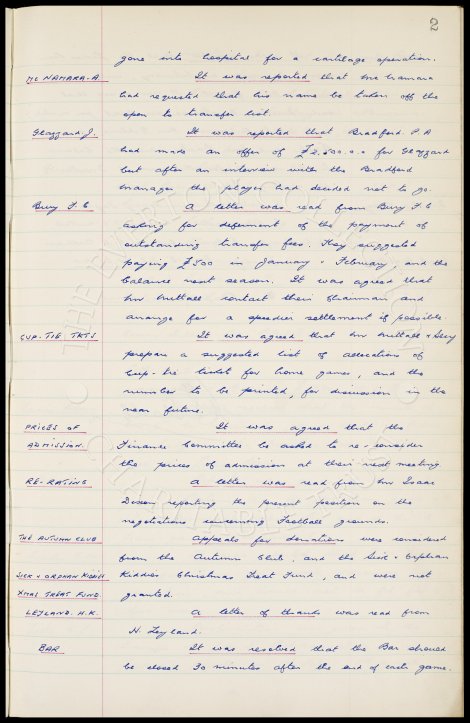 2
gone into hospital for a cartilage operation.
Mc NAMARA-A. It was reported that Mc Namara
had requested that his name be taken off the
open to transfer list.
Glazzard. J. It was reported that Bradford P.A
had made an offer of £2.500.0.0 for Glazzard
but after an interview with the Bradford
manager the player had decided not to go.
Bury F.C A letter was read from Bury F.C
asking for deferment of the payment of
outstanding transfer fees. They suggested
paying £500 in January & February, and the
balance next season. It was agreed that
Mr Nuttall contact their Chairman and
arrange for a speedier settlement if possible.
CUP-TIE TKTS It was agreed that Mr Nuttall & Secy
prepare a suggested list of allocations of
Cup-tie tickets for home games, and the
number to be printed, for discussion in the
near future.
PRICES OF It was agreed that the
ADMISSION. Finance Committee be asked to re-consider
the prices of admission at their next meeting.
RE-RATING A letter was read from Mr Isaac
Dixon reporting the present position on the
negotiations concerning Football grounds.
THE AUTUMN CLUB Appeals for donations were considered
from the Autumn Club, and the Sick & Orphan
SICK & ORPHAN KIDDIES Kiddies Christmas Treat Fund, and were not
XMAS TREAT FUND. granted.
LEYLAND. H.K. A letter of thanks was read from
H. Leyland.
BAR It was resolved that the Bar should
be closed 30 minutes after the end of each game.